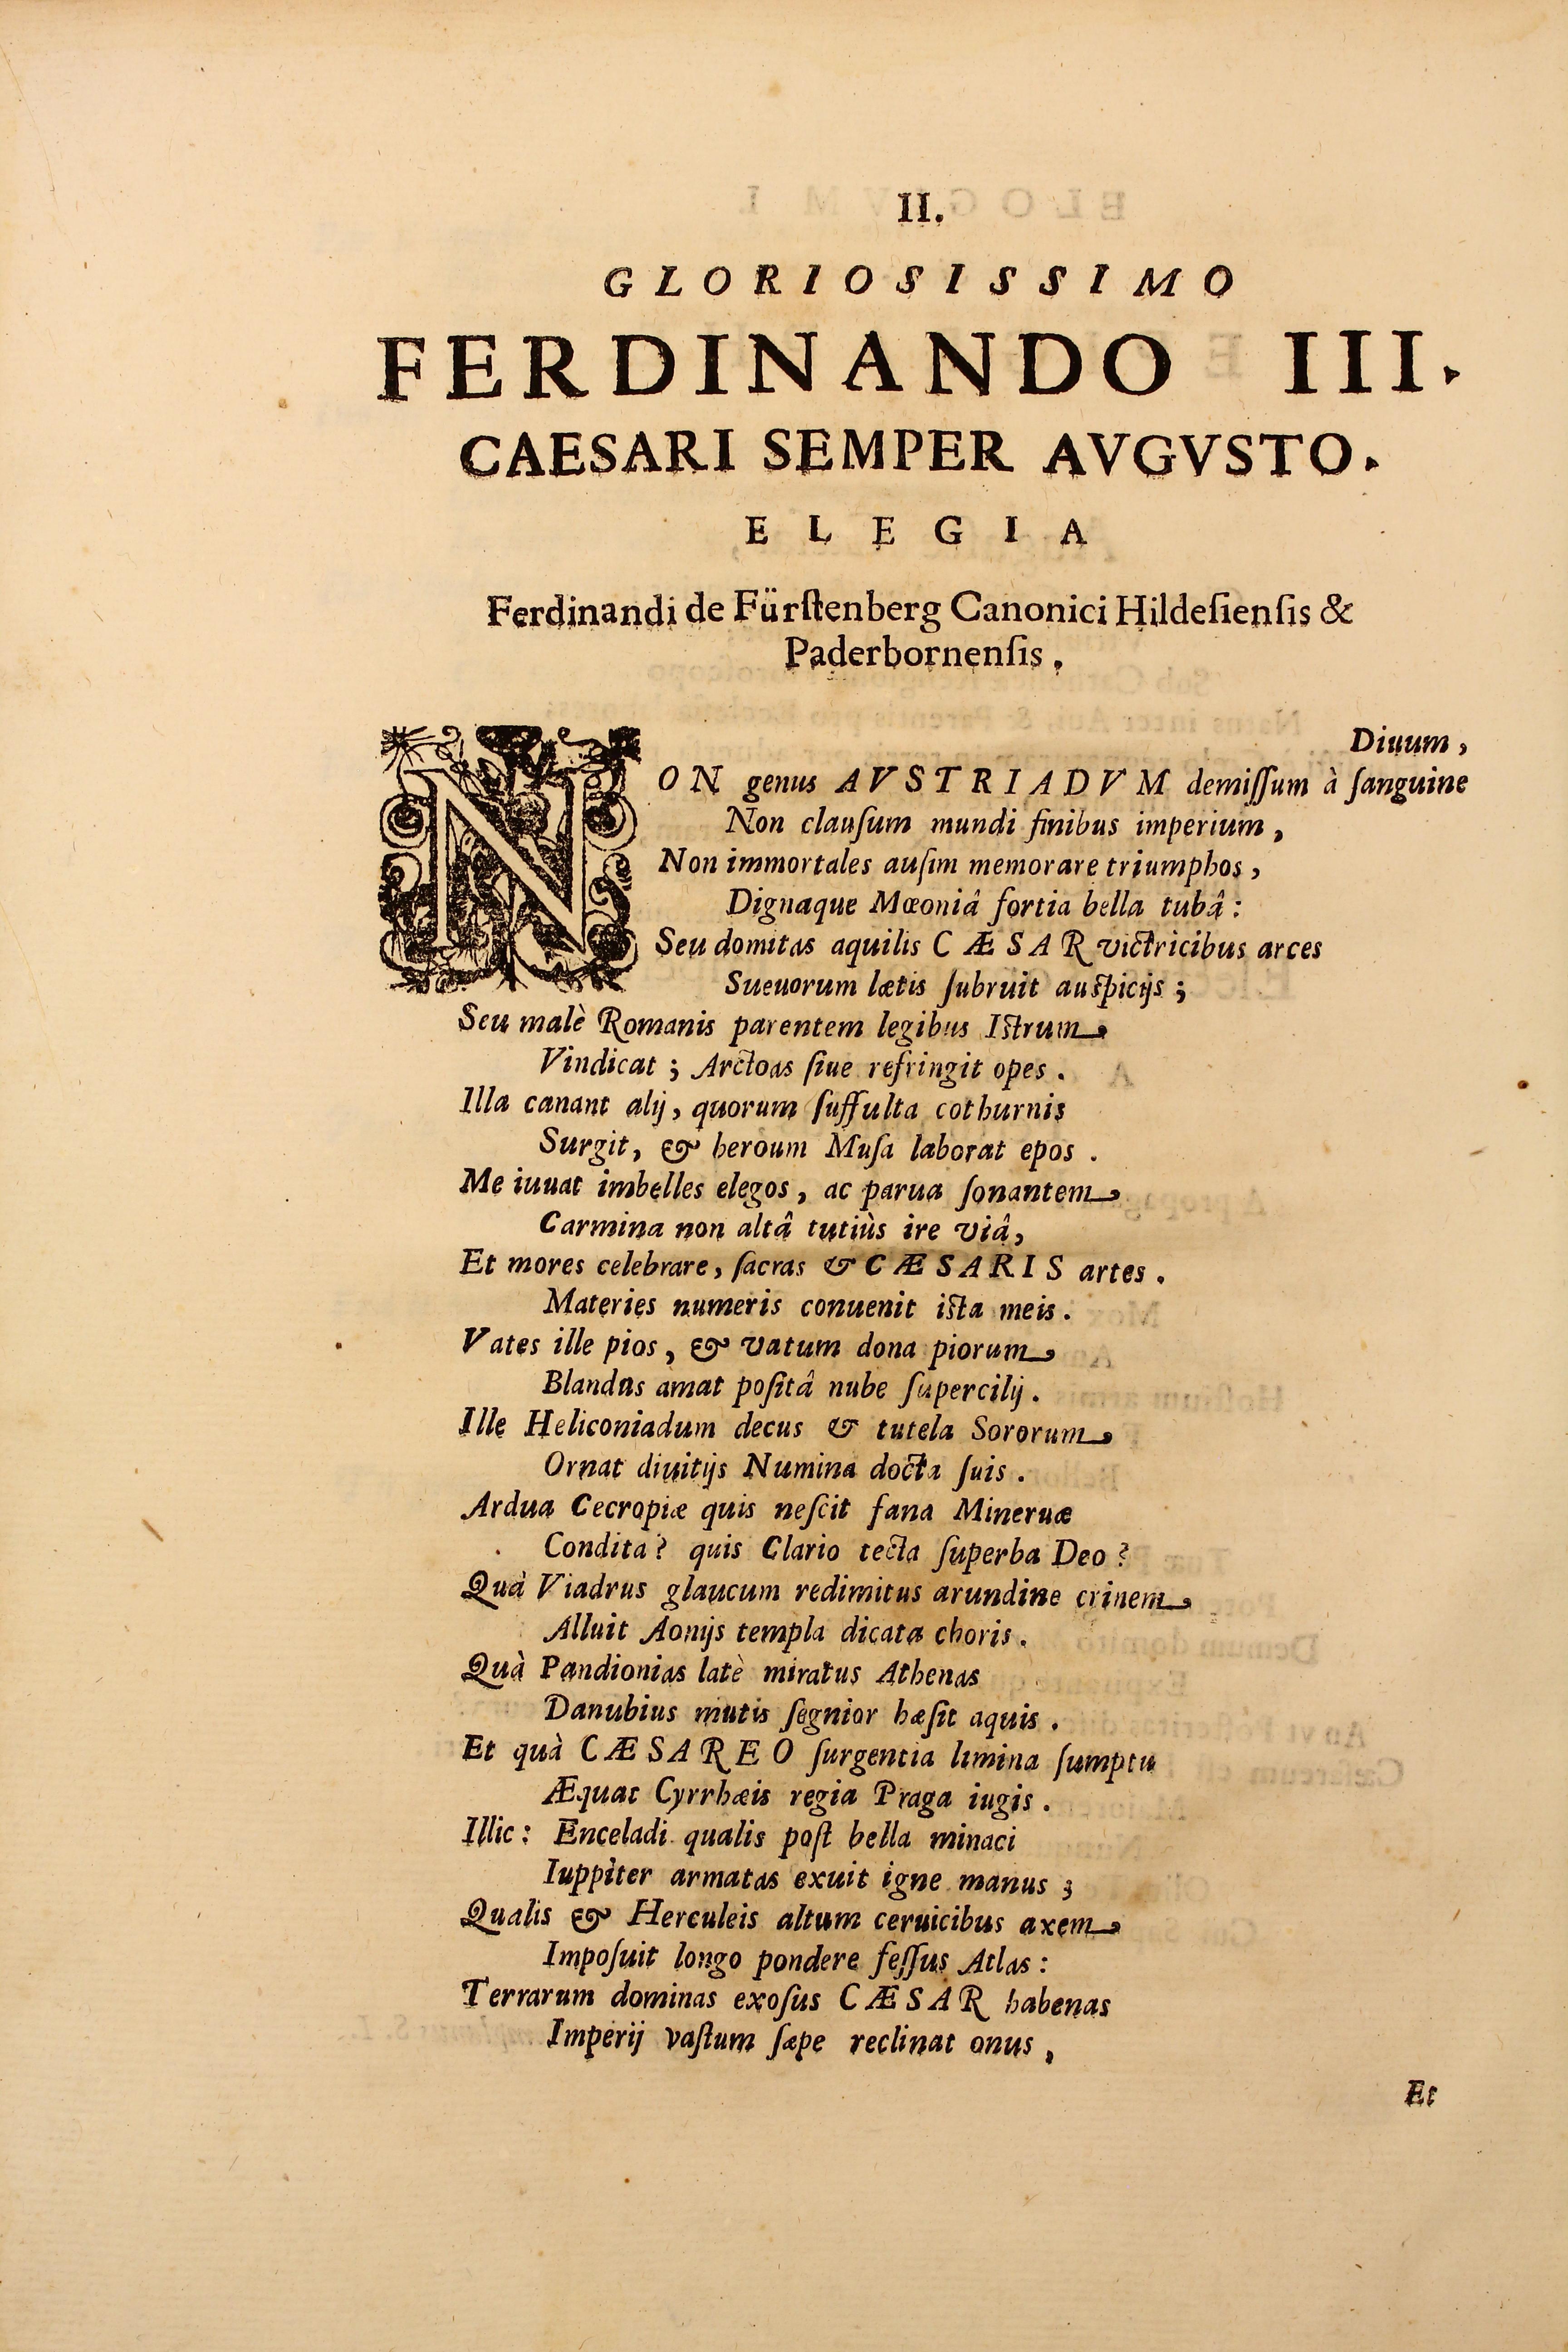 II.
GLORIOSISSIMO
FERDINANDO III.
CAESARI SEMPER AVGVSTO.
ELEGIA
Ferdinandi de Fürſtenberg Canonici Hildeſienſis &
Paderbornenſis.
Diuum,
NON genus AVSTRIADVM demiſſum à ſanguine
Non clauſum mundi finibus imperium,
Non immortales auſim memorare triumphos,
Dignaque Mœoniâ fortia bella tubâ:
Seu domitas aquilis CÆSAR victricibus arces
Sueuorum lætis ſubruit auſpicijs;
Seu malè Romanis parentem legibus Iſtrum
Vindicat; Arctoas ſiue refringit opes.
Illa canant alij, quorum ſuffulta cothurnis
Surgit, & heroum Muſa laborat epos.
Me iuuat imbelles elegos, ac parua ſonantem
Carmina non altâ tutiùs ire viâ,
Et mores celebrare, ſacras & CÆSARIS artes.
Materies numeris conuenit iſta meis.
Vates ille pios, & vatum dona piorum
Blandus amat poſitâ nube ſupercilij.
Ille Heliconiadum decus & tutela Sororum
Ornat diuitijs Numina docta ſuis.
Ardua Cecropiæ quis neſcit fana Mineruæ
Condita? quis Clario tecta ſuperba Deo?
Quà Viadrus glaucum redimitus arundine crinem
Alluit Aonijs templa dicata choris.
Quà Pandionias latè miratus Athenas
Danubius mutis ſegnior hæſit aquis.
Et quà CÆSAREO ſurgentia limina ſumptu
Æquat Cyrrhæis regia Praga iugis.
Illic: Enceladi qualis poſt bella minaci
Iuppiter armatas exuit igne manus;
Qualis & Herculeis altum ceruicibus axem
Impoſuit longo pondere feſſus Atlas:
Terrarum dominas exoſus CÆSAR habenas
Imperij vaſtum ſæpe reclinat onus,
Et